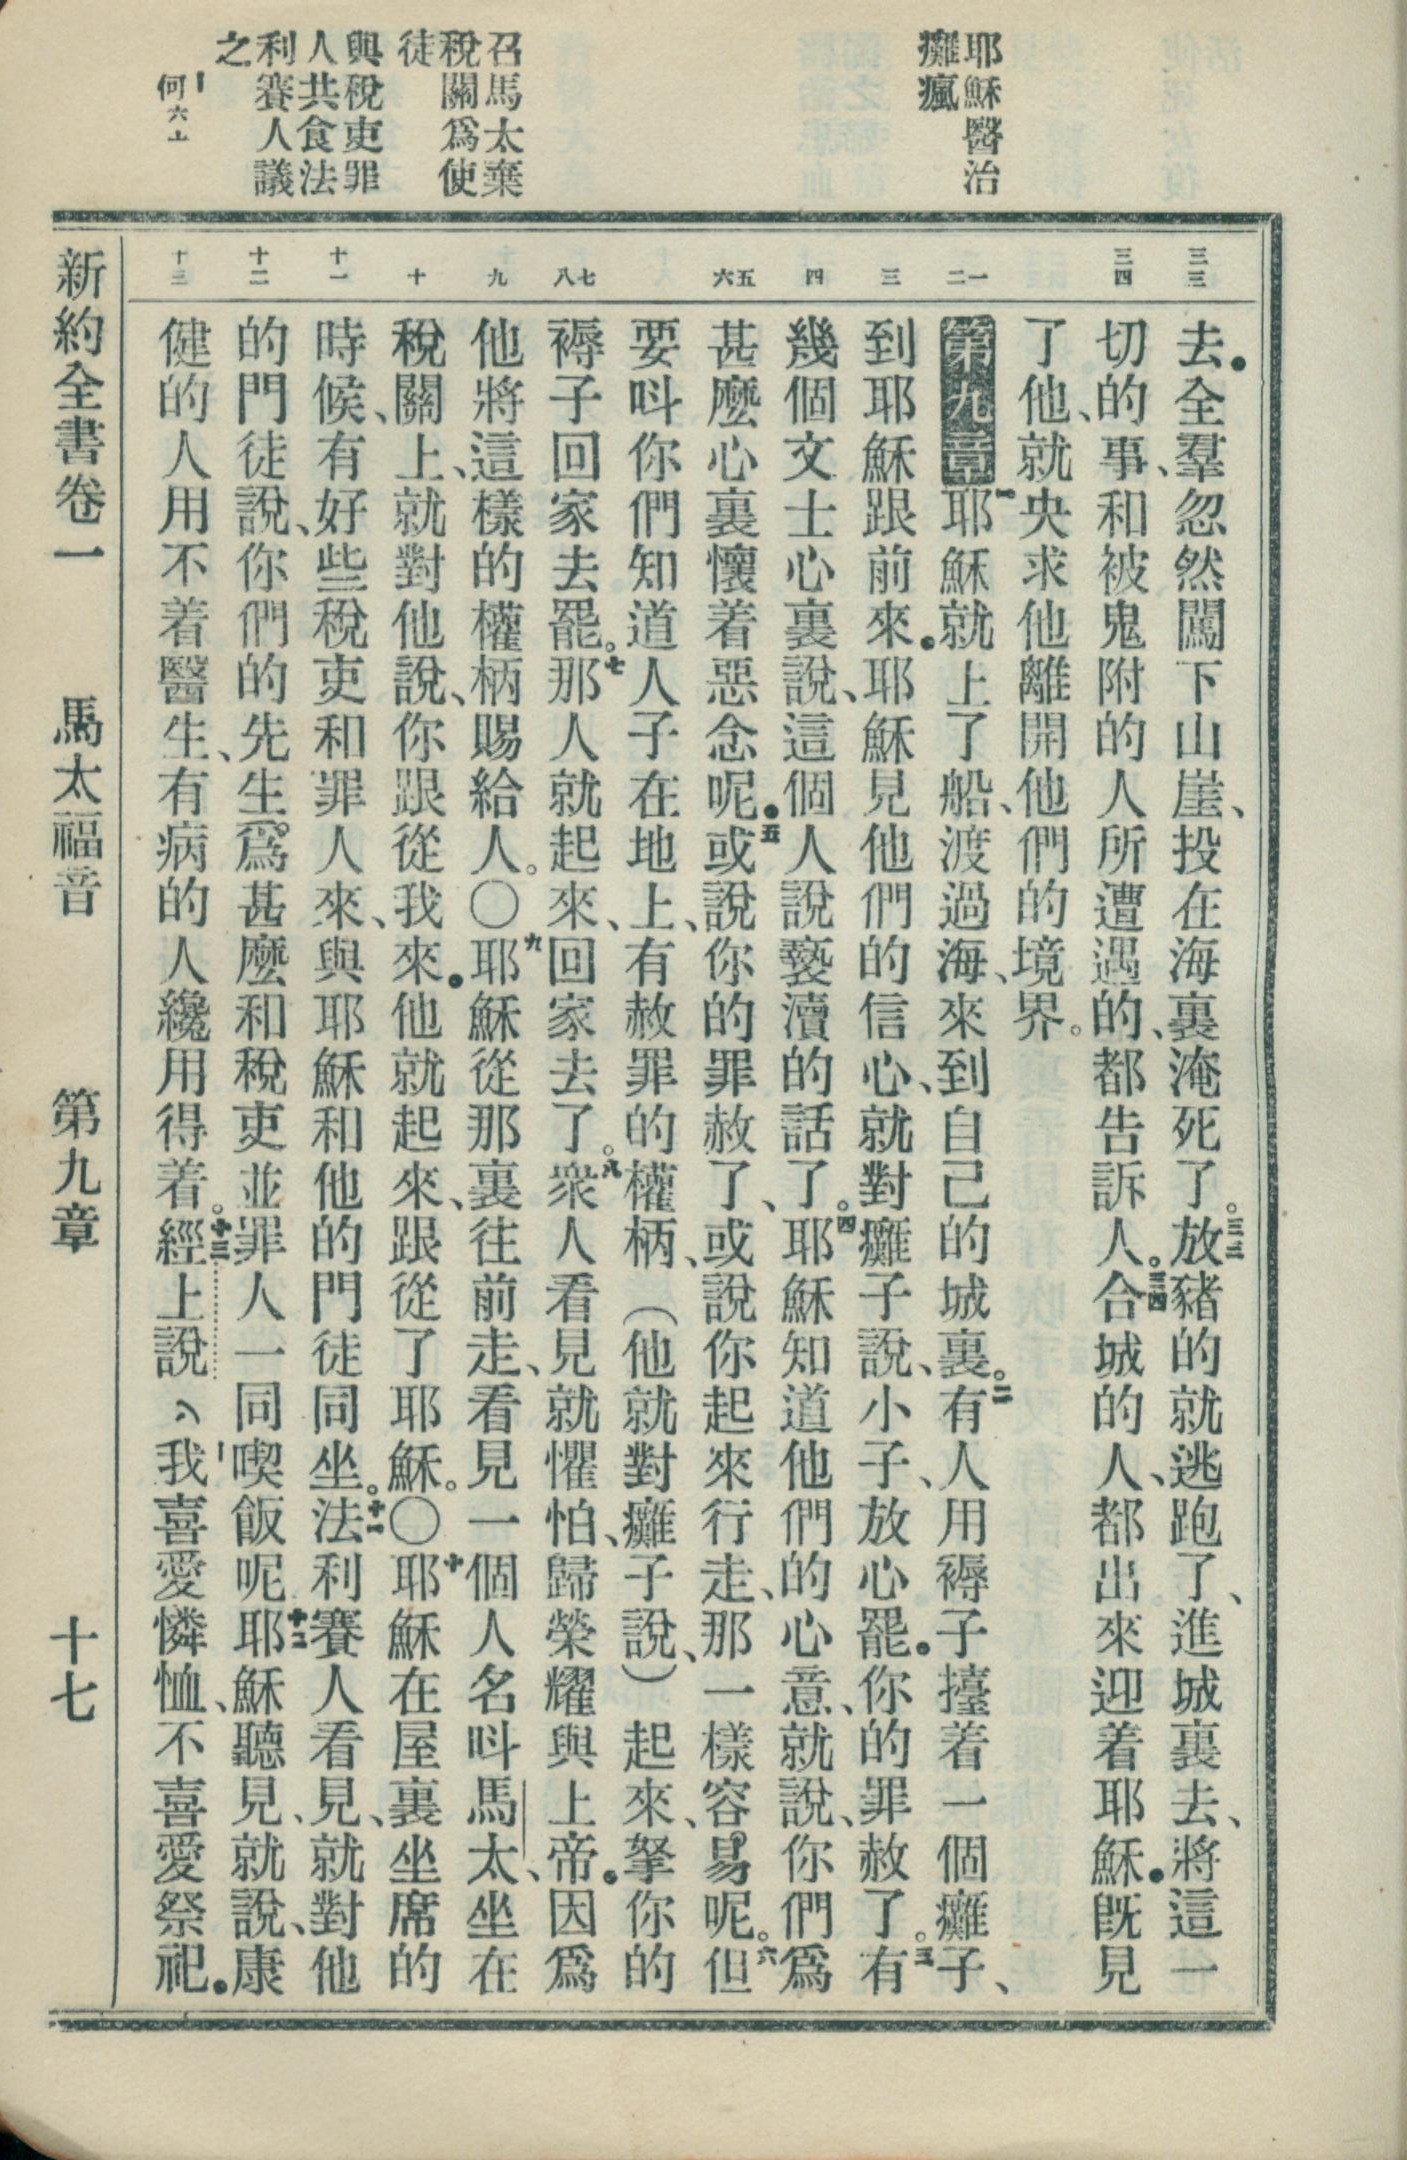 耶穌醫治
癱瘋
召馬太棄
稅關爲使
徒
與稅吏罪
人共食法
利賽人議
之
何六·六
三三
三四
一二
三
四
五六
七八
九
十
十一
十二
十三
去．全羣忽然闖下山崖、投在海裏淹死了。三三放豬的就逃跑了、進城裏去、將這一
切的事、和被鬼附的人所遭遇的、都告訴人。三四合城的人、都出來迎着耶穌．旣見
了他、就央求他離開他們的境界。
第九章一耶穌就上了船、渡過海、來到自己的城裏。二有人用褥子擡着一個癱子、
到耶穌跟前來．耶穌見他們的信心、就對癱子說、小子、放心罷．你的罪赦了。三有
幾個文士心裏說、這個人說褻瀆的話了。四耶穌知道他們的心意、就說、你們爲
甚麽心裏懷着惡念呢．五或說你的罪赦了、或說你起來行走、那一樣容易呢。六但
要呌你們知道人子在地上、有赦罪的權柄、（他就對癱子說、）起來、拏你的
褥子回家去罷。七那人就起來、回家去了。八衆人看見就懼怕、歸榮耀與上帝．因爲
他將這樣的權柄賜給人。○九耶穌從那裏往前走、看見一個人名呌馬太、坐在
稅關上、就對他說、你跟從我來．他就起來、跟從了耶穌。○十耶穌在屋裏坐席的
時候、有好些稅吏和罪人來、與耶穌和他的門徒同坐。十一法利賽人看見、就對他
的門徒說、你們的先生、爲甚麽和稅吏並罪人一同喫飯呢。十二耶穌聽見、就說、康
健的人用不着醫生、有病的人纔用得着。十三經上說、我喜愛憐恤、不喜愛祭祀．
新約全書卷一 馬太福音 第九章 十七